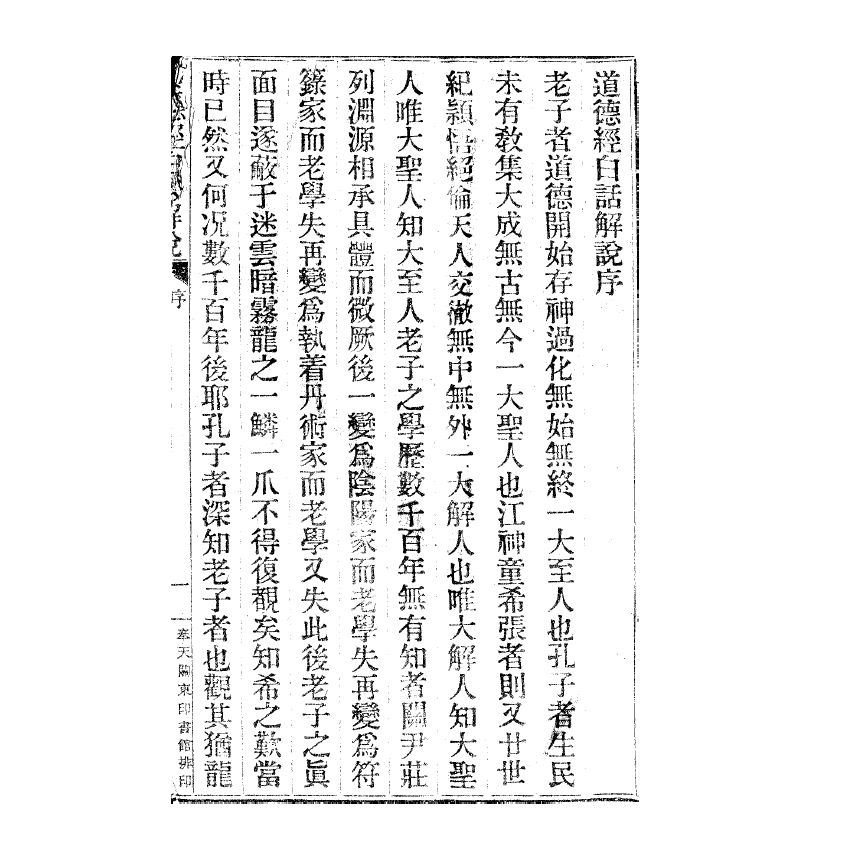 道德經白話解說序
老子者道德開始存神過化無始無終一大至人也孔子者生民
未有教集大成無古無今一大聖人也江神童希張者則又廿世
紀穎悟絕倫天人交澈無中無外一大解人也唯大解人知大聖
人唯大聖人知大至人老子之學歷數千百年無有知者關尹莊
列淵源相承具體而微厥後一變爲陰陽家而老學失再變爲符
籙家而老學失再變爲執着丹術家而老學又失此後老子之眞
面目遂蔽于迷雲暗霧龍之一鱗一爪不得復覩矣知希之歎當
時已然又何况數千百年後耶孔子者深知老子者也觀其猶龍
道德經白話解說
序
一
奉天關東印書館排印